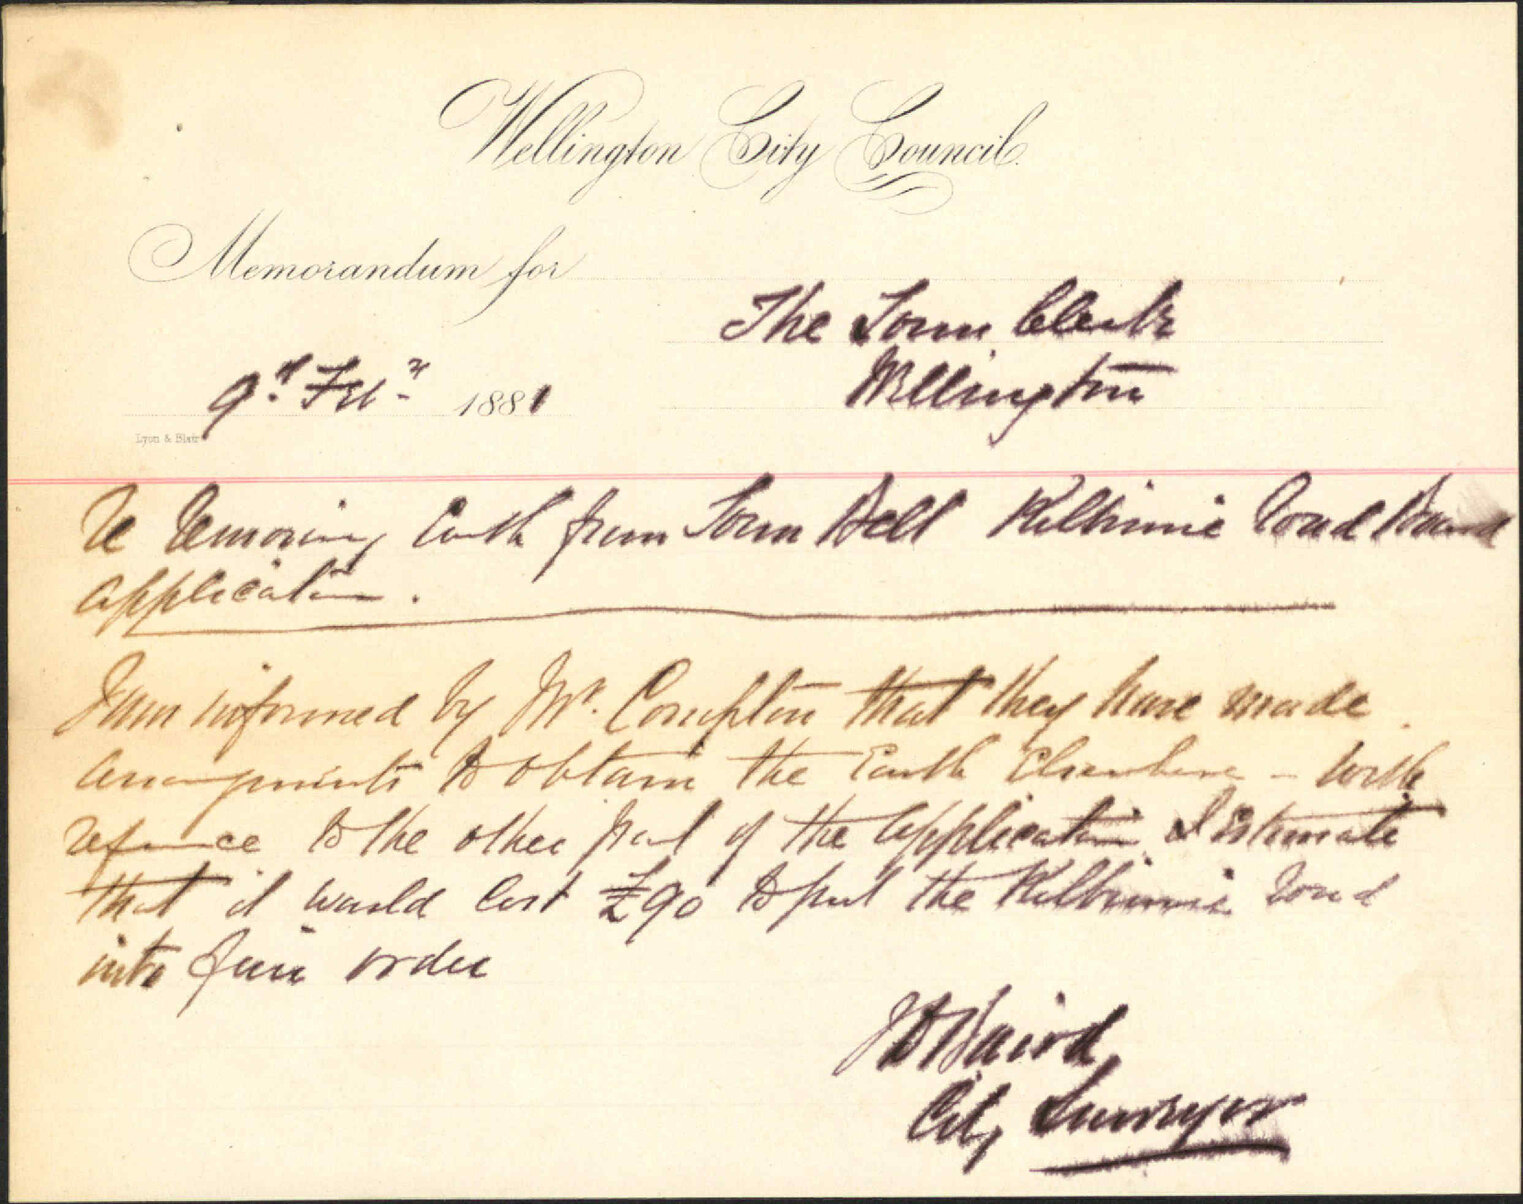 Wellington City Council.
Memorandum for
The Town Clerk
Wellington
9th Feby 1881
Lyon & Blair
Re removing Earth from Town Belt Kilbirnie Road Board
application.
I am informed by Mr. Compton that they have made
arrangements to obtain the Earth Elsewhere - With
reference to the other part of the application I Estimate
that it would cost £90 to put the Kilbirnie road
into fair order
J D Baird,
City Surveyor